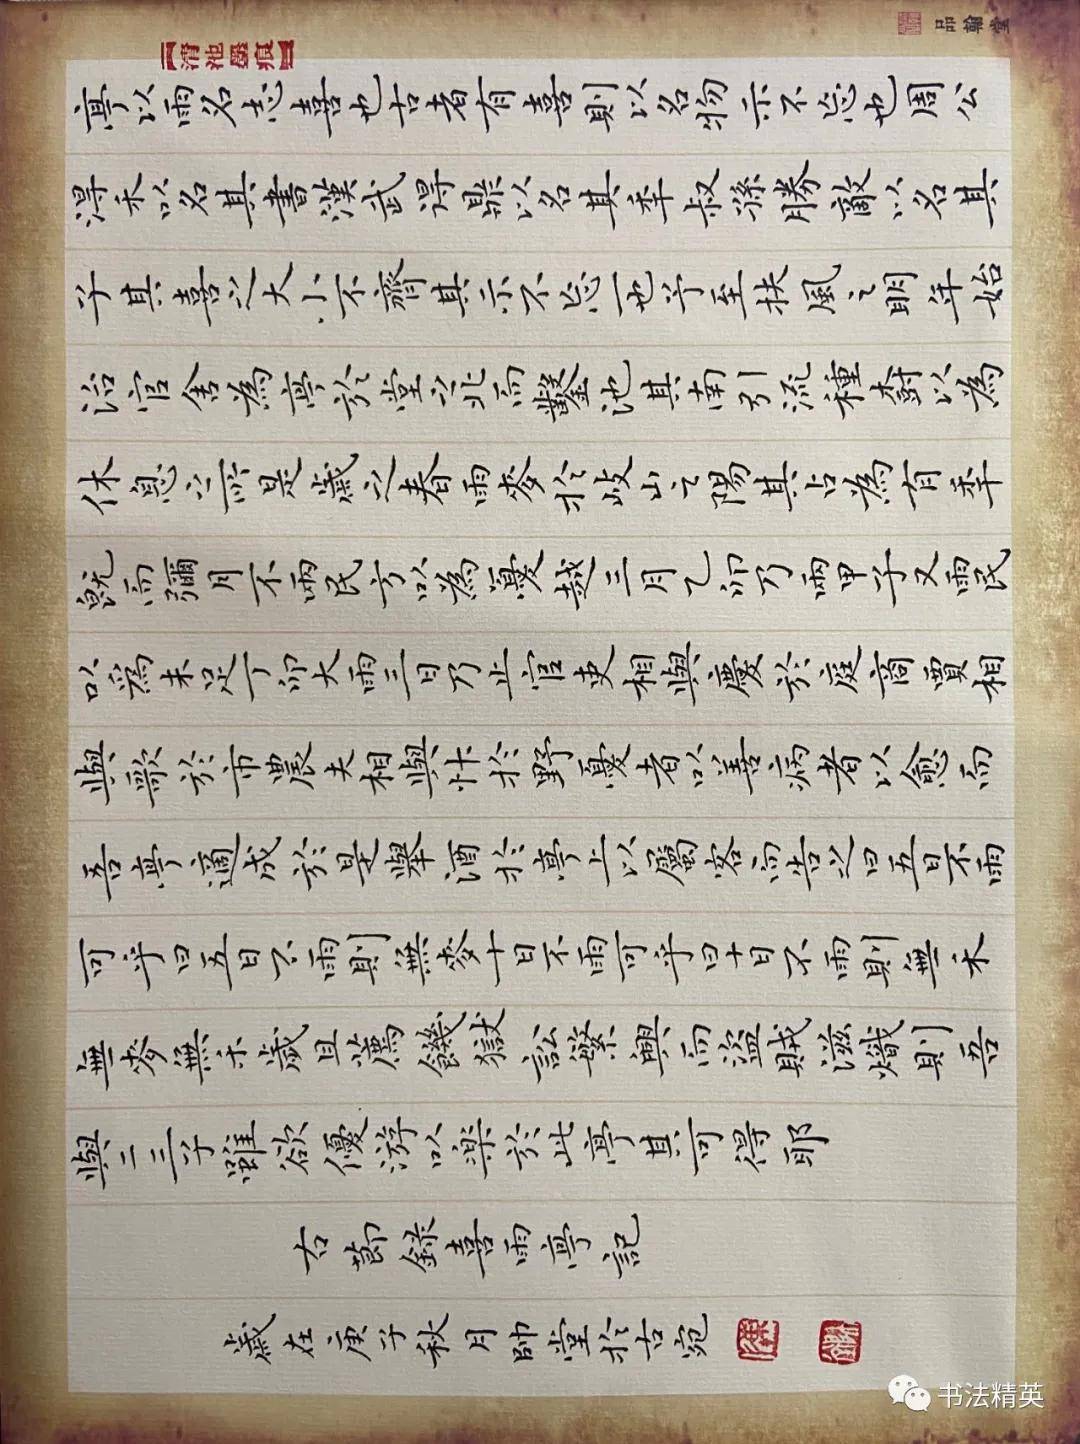 清池墨痕
品翰堂
亭以雨名志喜也古者有喜則以名物示不忘也周公
得禾以名其書漢武得鼎以名其年叔孫勝敵以名其
子其喜之大小不齊其示不忘一也予至扶風之明年始
治官舍為亭於堂之北而鑿池其南引流種樹以為
休息之所是歲之春雨麥於岐山之陽其占為有年
既而彌月不雨民方以為憂越三月乙卯乃雨甲子又雨民
以為未足丁卯大雨三日乃止官吏相與慶於庭商賈相
與歌於市農夫相與忭於野憂者以善病者以愈而
吾亭適成於是舉酒於亭上以屬客而告之曰五日不雨
可乎曰五日不雨則無麥十日不雨可乎曰十日不雨則無禾
無麥無禾歲且薦饑獄訟繁興而盜賊滋熾則吾
與二三子雖欲優游以樂於此亭其可得耶
右節錄喜雨亭記
歲在庚子秋月帥堂於古宛
书法精英